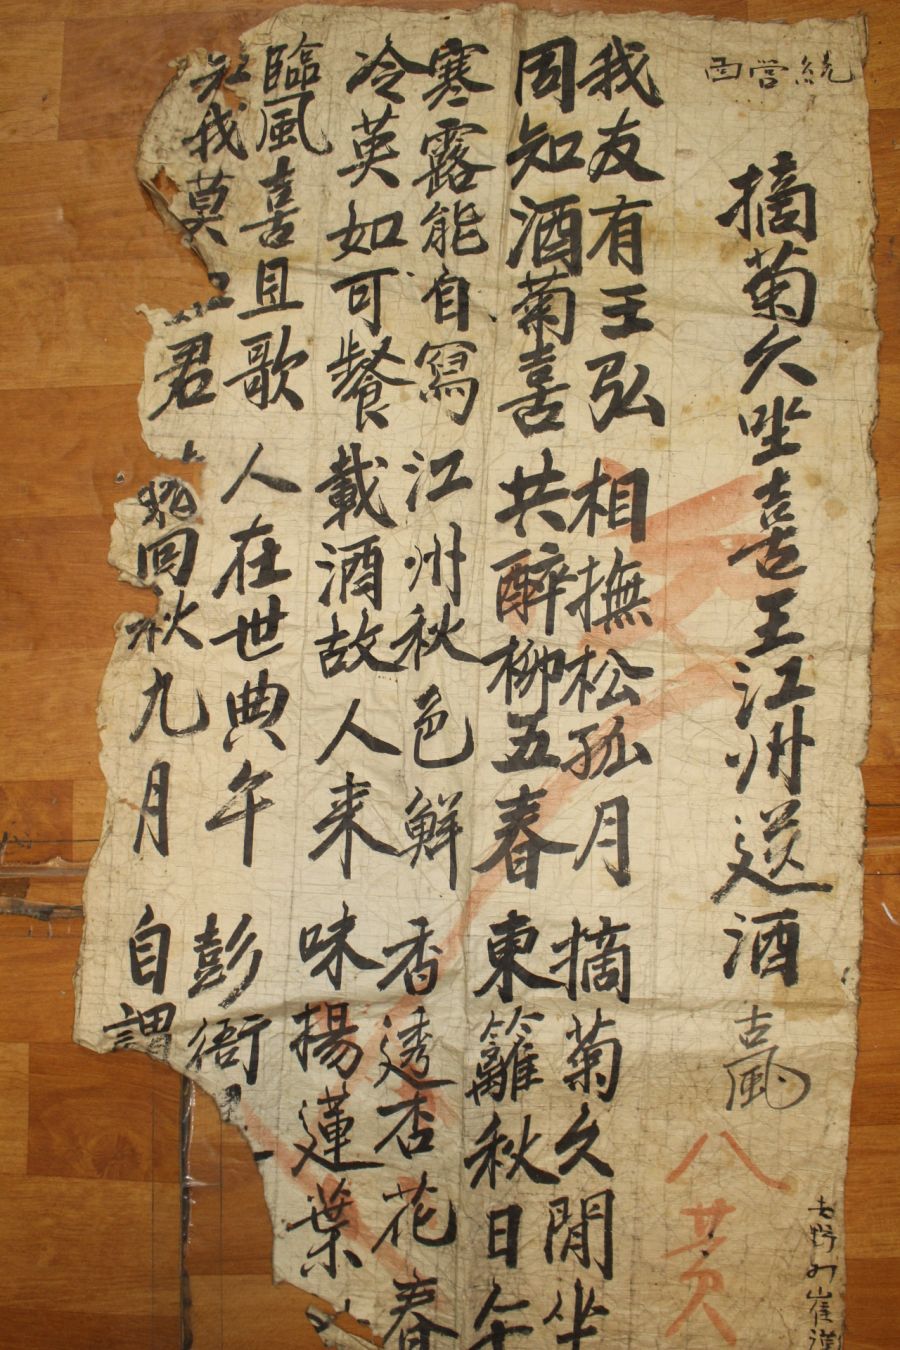 統營西
摘菊久坐喜王江州送酒 古風
八
古野
我友有王弘 相撫松孤月 摘菊久閒坐
同知酒菊喜 共醉柳五春 東籬秋日午
寒露能自寫 江州秋色鮮 香透杏花春
冷英如可餐 載酒故人来 味揚蓮葉
臨風喜且歌 人在世典午 彭衙
我莫 君 回秋九月 自謂